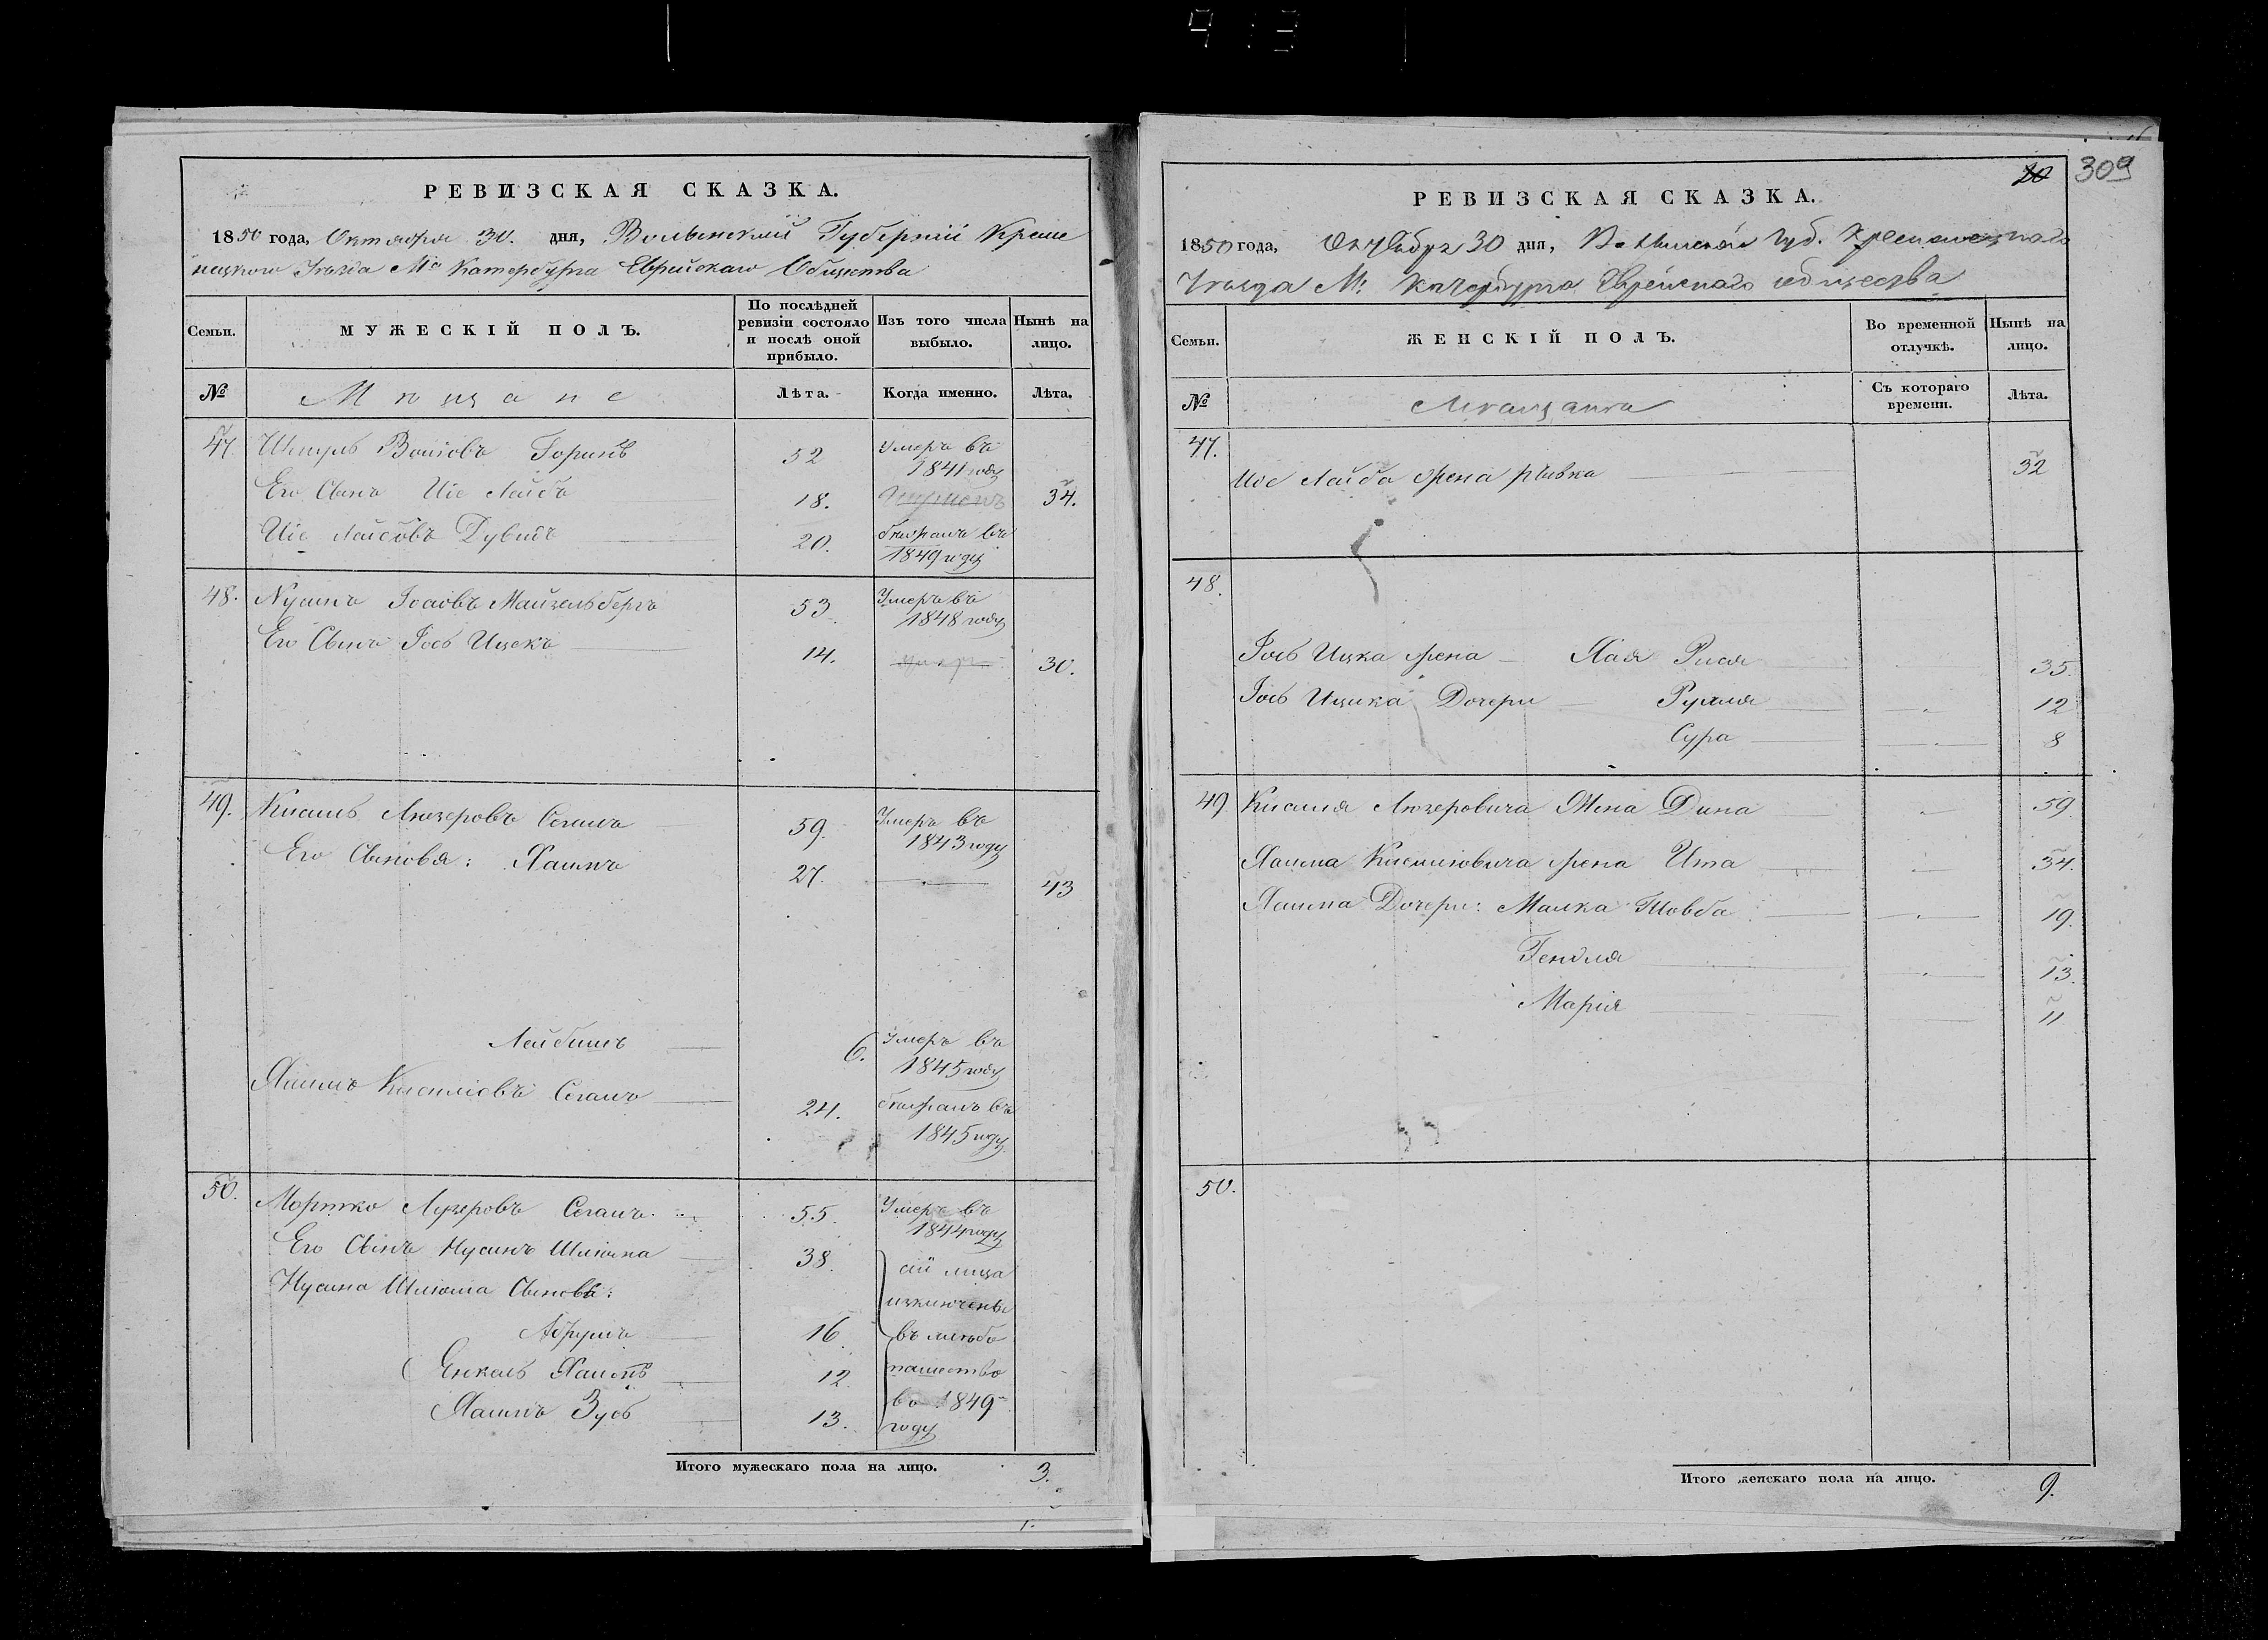 309
РЕВИЗСКАЯ СКАЗКА.
1850 года, Октября 30. дня, Волынской Губерніи Креме
нецкого Уезда Мѣ Катербурга Еврейскаго Общества
Семьи. МУЖЕСКІЙ ПОЛЪ. По послѣдней ревизіи состояло и послѣ оной прибыло. Изъ того числа выбыло. Нынѣ на лицо.
№ Мѣщане Лѣта. Когда именно. Лѣта.
47. Волiовъ 52 Умеръ въ
1841 году
Его Сынъ Иіе Лейбъ 18. 34.
Иіе Лейбовъ Дувидъ 20. въ
1849 году
48. Нусинъ Майзельбергъ 53 Умеръ въ
1848 году
Его Сынъ Іось Ицекъ 14. 30.
49. Кисиль Люзеровъ Сеганъ 59. Умеръ въ
1843 году
Его Сыновья: Хаимъ 27. 43
Лейбишъ 6. Умеръ въ
1845 году
Хаимъ Сеганъ 24. въ
1845 году
50. Мортко Лузеровъ Сеганъ 55. Умеръ въ
1844 году
Его Сынъ Нусинъ Шлиома 38. сіи лица
Нусина Шлиома Сыновья: изключены
Абрумъ 16 въ
Енкель Хаимъ 12 пашество
Хаимъ Зусь 13. во 1849
году
Итого мужескаго пола на лицо. 3.
20
РЕВИЗСКАЯ СКАЗКА.
1850 года, Октября 30 дня, Волынской Губ. Кременецкаго
Уезда М: Катербурга Еврейскаго общества
Семьи. ЖЕНСКІЙ ПОЛЪ. Во временной отлучкѣ. Нынѣ на лицо.
№ Мѣщанки Съ котораго времени. Лѣта.
47. Иос Лейба жена Рывка 32
48.
Іось Ицка жена Хая Рися 35.
Іось Ицика Дочери Рухля 12
Сура 8
49. Кисиля Люзеровича Жена Дина 59
Хаима Кисилиовича жена Ита 34.
Хаима Дочери: Малка Товба 19.
Гендля 13.
Марія 11
50.
Итого женскаго пола на лицо. 9.